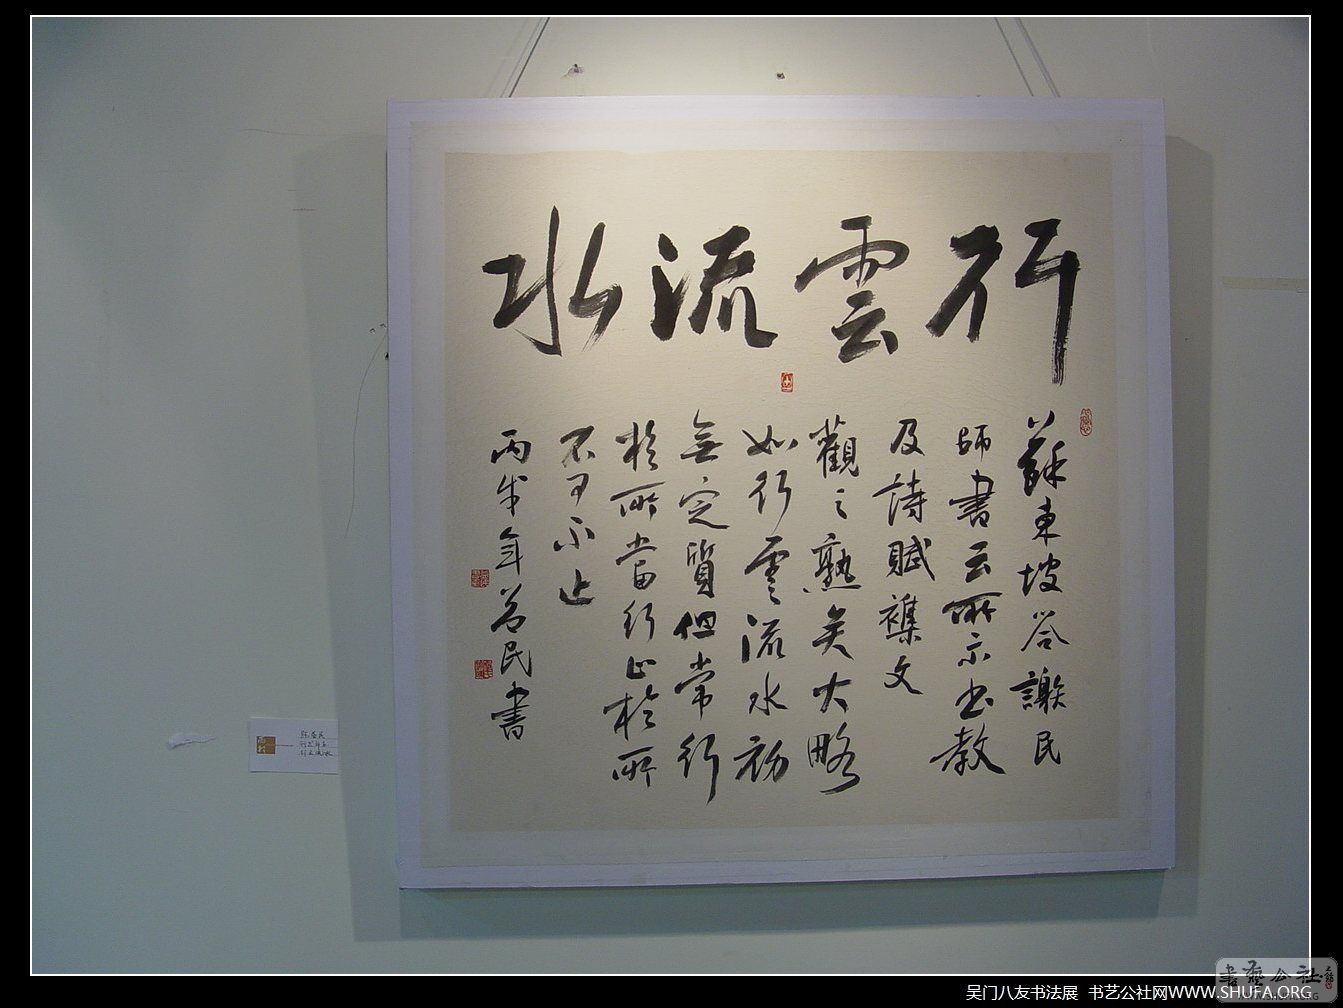 行雲流水
蘇東坡荅謝民
師書云所示書教
及詩賦襍文
觀之熟矣大略
如行雲流水初
無定質但常行
於所當行止於所
不可不止
丙戌年民書
书艺公社
吴门八友书法展 书艺公社网WWW.SHUFA.ORG